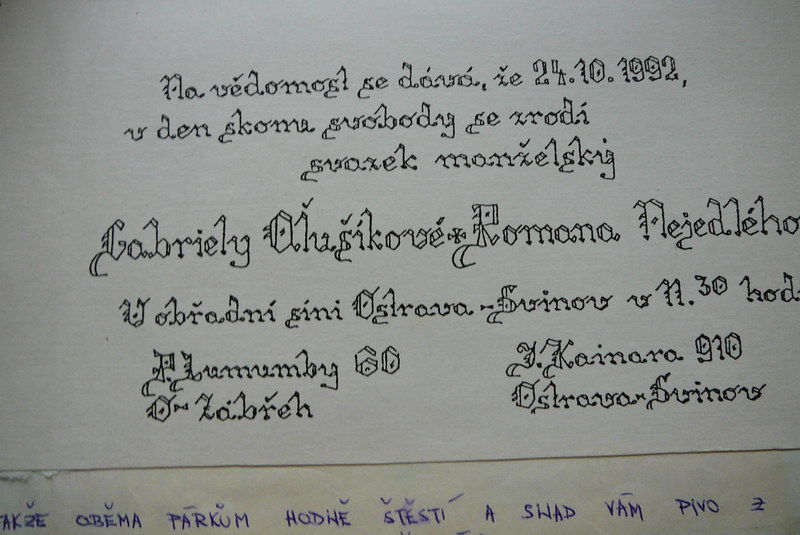 Na vědomost se dává, že 24.10.1992,
v den skonu svobody se zrodí
svazek manželský
Gabriely Olušíkové * Romana Nejedlého
V obřadní síni Ostrava - Svinov v 11.30 hod
P. Lumumby 60
O - Zábřeh
J. Kainara 910
Ostrava - Svinov
AKŽE OBĚMA PÁRKŮM HODNĚ ŠTĚSTÍ A SNAD VÁM PIVO Z